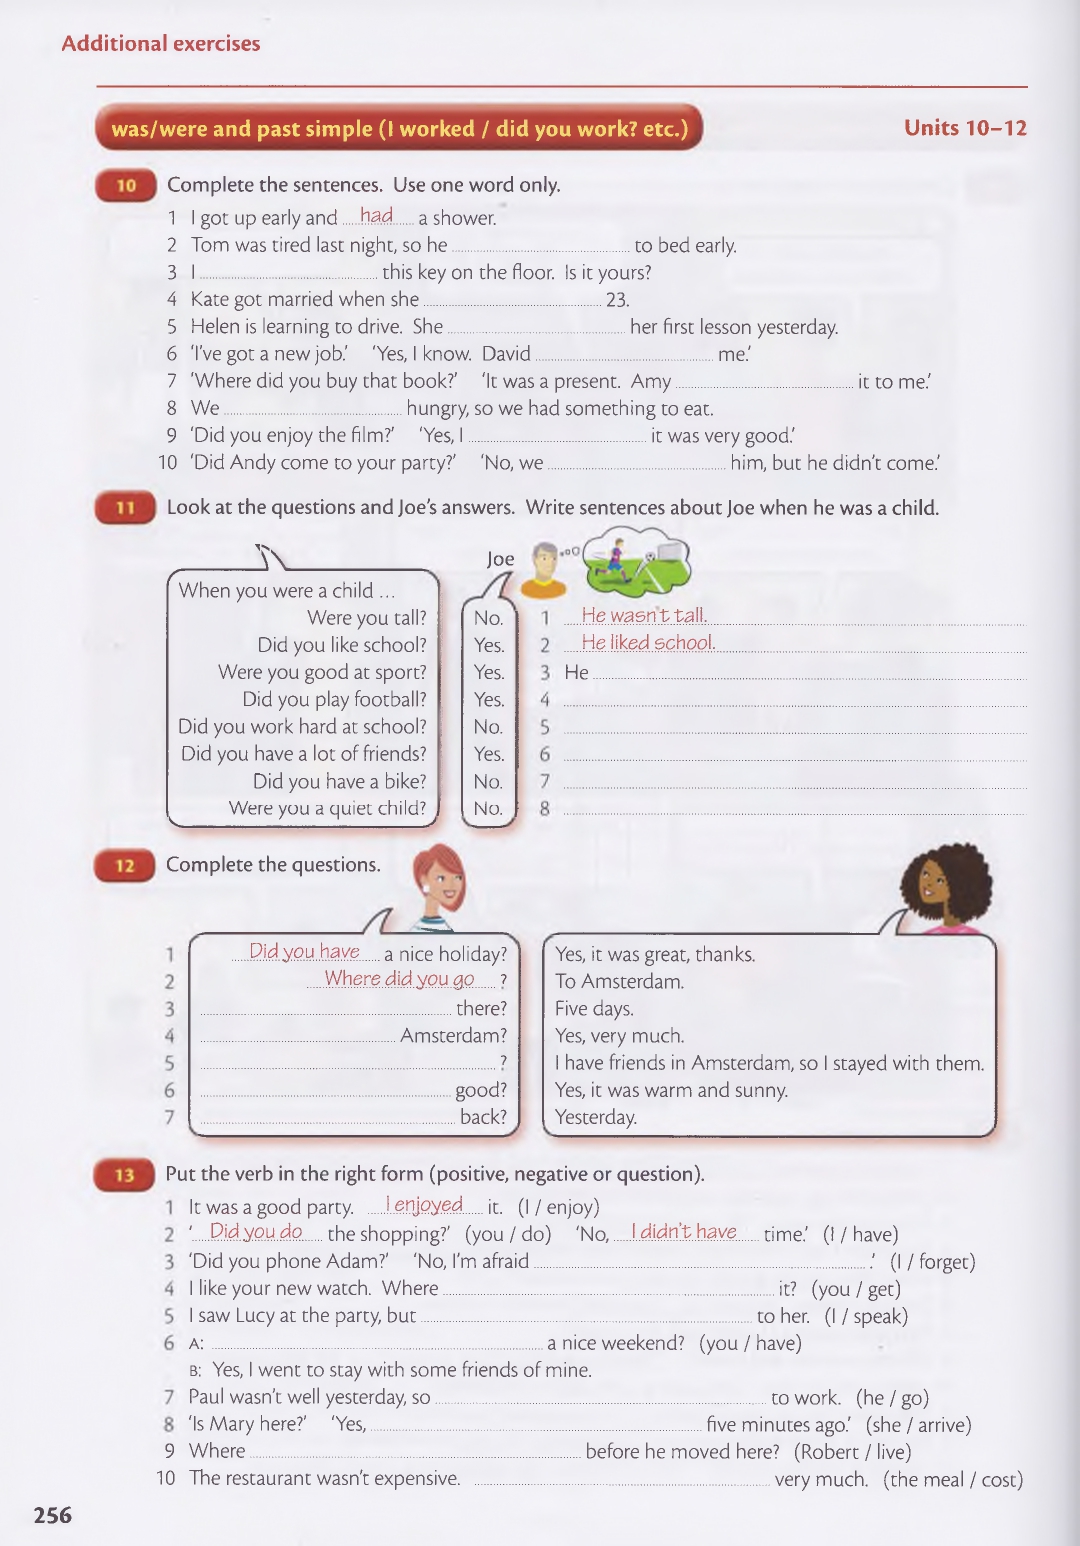 Additional exercises
was/were and past simple (I worked / did you work? etc.)
Units 10–12
10 Complete the sentences. Use one word only.
1 I got up early and had a shower.
2 Tom was tired last night, so he to bed early.
3 I this key on the floor. Is it yours?
4 Kate got married when she 23.
5 Helen is learning to drive. She her first lesson yesterday.
6 ‘I’ve got a new job.’ ‘Yes, I know. David me.’
7 ‘Where did you buy that book?’ ‘It was a present. Amy it to me.’
8 We hungry, so we had something to eat.
9 ‘Did you enjoy the film?’ ‘Yes, I it was very good.’
10 ‘Did Andy come to your party?’ ‘No, we him, but he didn’t come.’
11 Look at the questions and Joe’s answers. Write sentences about Joe when he was a child.
Joe
When you were a child ...
Were you tall? No. 1 He wasn’t tall.
Did you like school? Yes. 2 He liked school.
Were you good at sport? Yes. 3 He
Did you play football? Yes. 4
Did you work hard at school? No. 5
Did you have a lot of friends? Yes. 6
Did you have a bike? No. 7
Were you a quiet child? No. 8
12 Complete the questions.
1 Did you have a nice holiday? Yes, it was great, thanks.
2 Where did you go ? To Amsterdam.
3 there? Five days.
4 Amsterdam? Yes, very much.
5 ? I have friends in Amsterdam, so I stayed with them.
6 good? Yes, it was warm and sunny.
7 back? Yesterday.
13 Put the verb in the right form (positive, negative or question).
1 It was a good party. I enjoyed it. (I / enjoy)
2 ‘ Did you do the shopping?’ (you / do) ‘No, I didn’t have time.’ (I / have)
3 ‘Did you phone Adam?’ ‘No, I’m afraid .’ (I / forget)
4 I like your new watch. Where it? (you / get)
5 I saw Lucy at the party, but to her. (I / speak)
6 A: a nice weekend? (you / have)
B: Yes, I went to stay with some friends of mine.
7 Paul wasn’t well yesterday, so to work. (he / go)
8 ‘Is Mary here?’ ‘Yes, five minutes ago.’ (she / arrive)
9 Where before he moved here? (Robert / live)
10 The restaurant wasn’t expensive. very much. (the meal / cost)
256